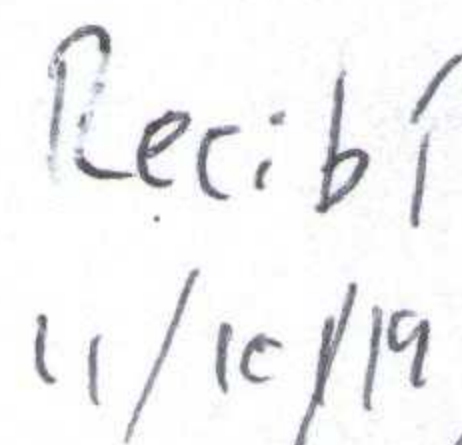 Recibí
11/10/19